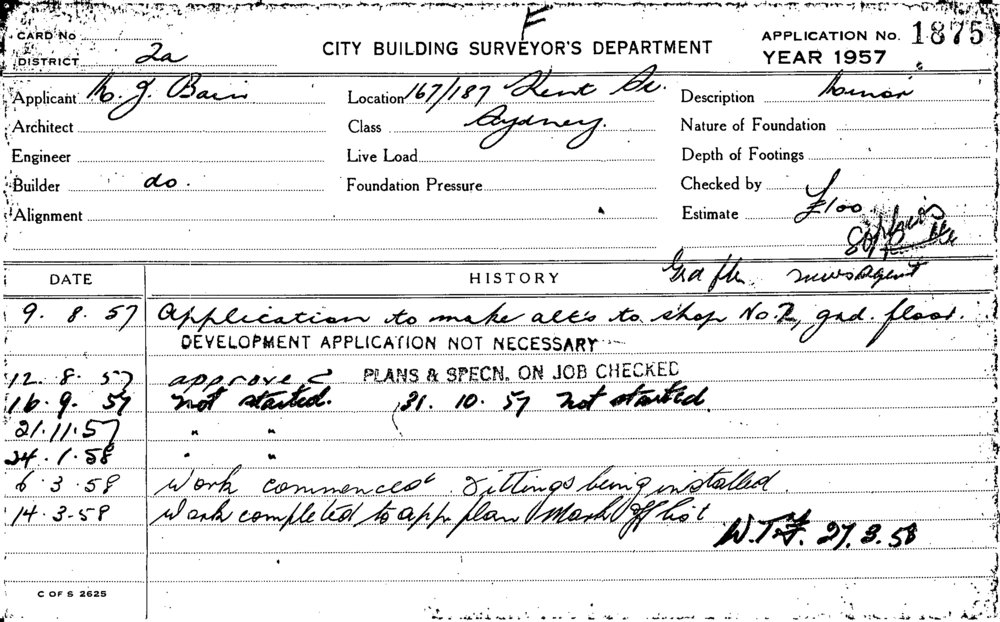 F
CARD No
DISTRICT 2a
CITY BUILDING SURVEYOR'S DEPARTMENT
APPLICATION No. 1875
YEAR 1957
Applicant K. J. Bain
Location 167/187 Kent St.
Description Minor
Architect
Class Sydney.
Nature of Foundation
Engineer
Live Load
Depth of Footings
Builder do.
Foundation Pressure
Checked by
Alignment
Estimate £100
DATE
HISTORY
Gnd flr newsagent
9. 8. 57 Application to make alts to shop No. 2, gnd. floor.
DEVELOPMENT APPLICATION NOT NECESSARY
12. 8. 57 approved PLANS & SPECN. ON JOB CHECKED
16. 9. 57 not started. 31. 10. 57 not started.
21.11.57 " "
24. 1. 58 " "
6. 3. 58 Work commenced fittings being installed.
14. 3. 58 Work completed to app plan Mark Off list
27. 3. 58
C OF S 2625